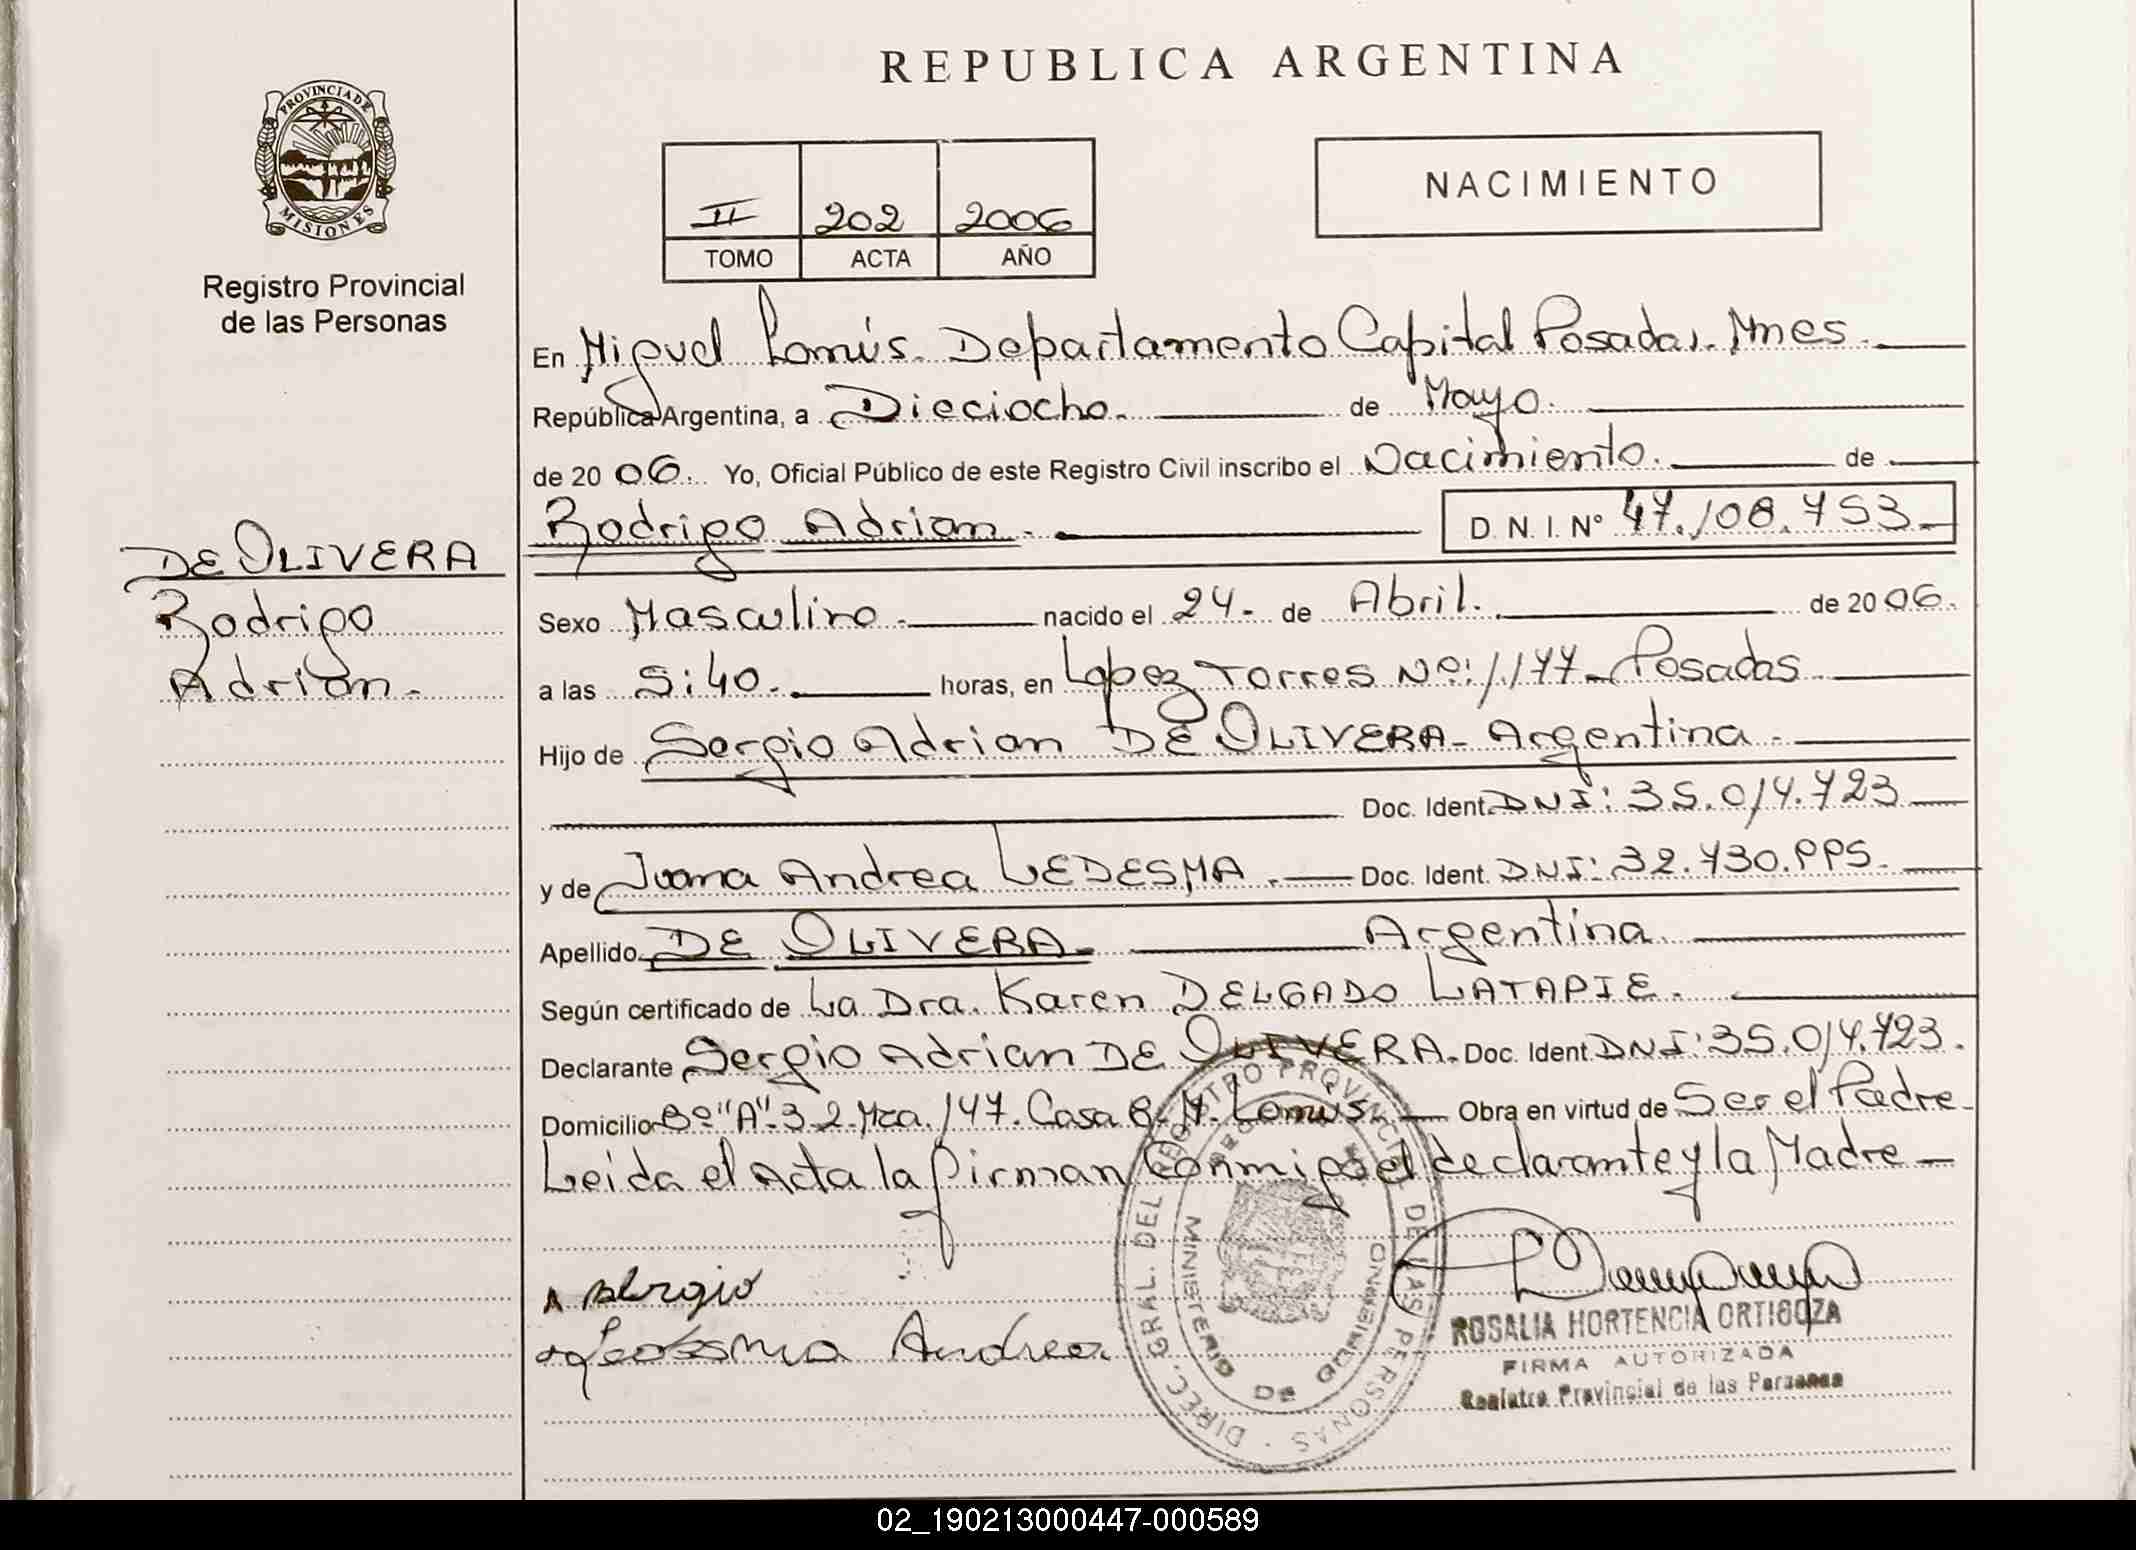 REPUBLICA ARGENTINA
PROVINCIA DE
MISIONES
Registro Provincial
de las Personas
II 202 2006
TOMO ACTA AÑO
NACIMIENTO
En Miguel Lanús. Departamento Capital Posadas. Mnes.
República Argentina, a Dieciocho. de Mayo.
de 2006. Yo, Oficial Público de este Registro Civil inscribo el Nacimiento. de
Rodrigo Adrian. D. N. I. N° 47.108.753.
DE OLIVERA
Rodrigo
Adrian.
Sexo Masculino. nacido el 24. de Abril. de 2006.
a las 5:40. horas, en Lopez Torres Nº: 1.177 Posadas
Hijo de Sergio Adrian DE OLIVERA - Argentina.
Doc. Ident. DNI: 35.014.723
y de Juana Andrea LEDESMA. Doc. Ident. DNI: 32.730.
Apellido DE OLIVERA Argentina
Según certificado de La Dra. Karen DELGADO LATAPIE.
Declarante Sergio Adrian DE OLIVERA. Doc. Ident. DNI: 35.014.723.
Domicilio Bº "A" 3.2. Mza. 147. Casa 8. M. Lanus. Obra en virtud de Ser el Padre
Leida el Acta la firman Conmigo el declarante y la Madre
Sergio
Ledesma Andrea
DIREC. GRAL. DEL REGISTRO PROVINCIAL DE LAS PERSONAS
MINISTERIO DE GOBIERNO
ROSALIA HORTENCIA ORTIGOZA
FIRMA AUTORIZADA
Registro Provincial de las Personas
02_190213000447-000589